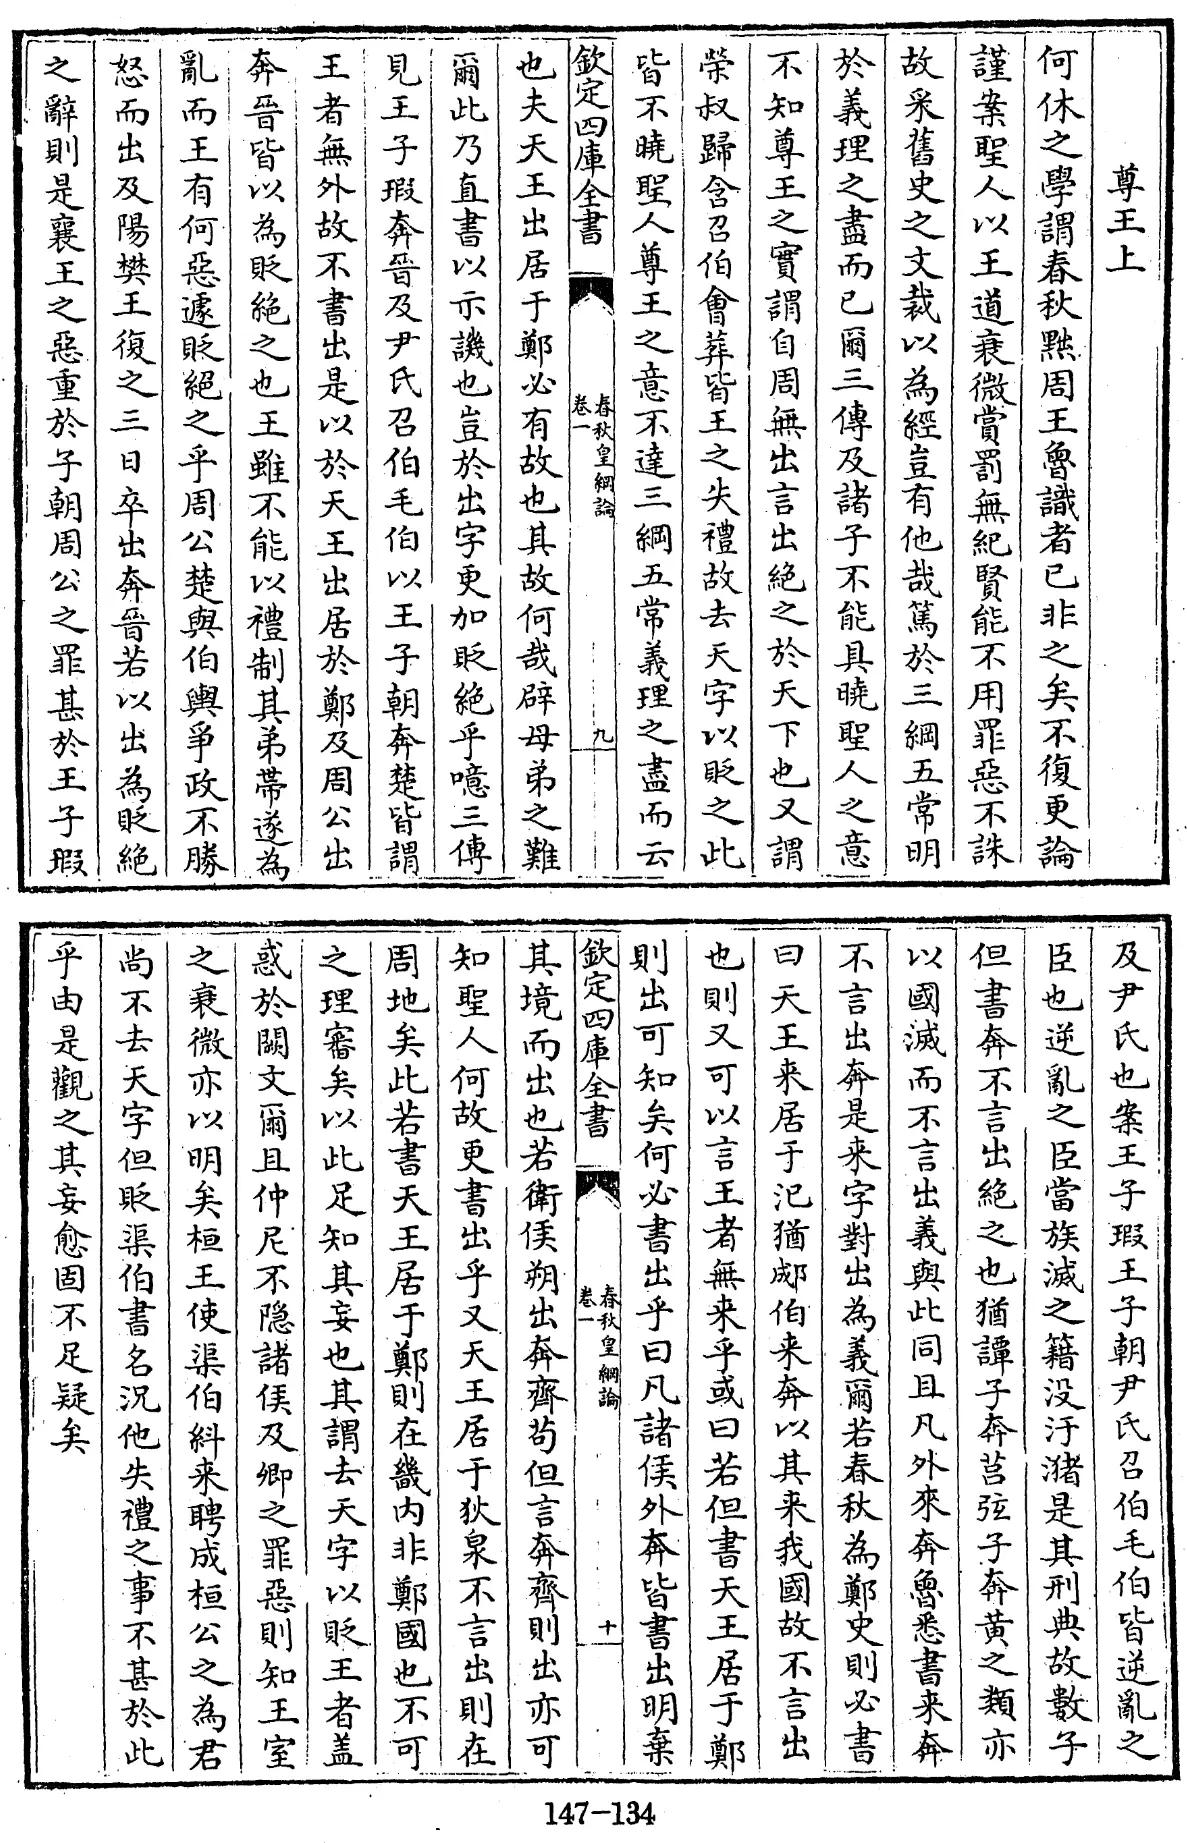 尊王上
何休之學謂春秋黜周王魯識者已非之矣不復更論
謹案聖人以王道衰微賞罰無紀賢能不用罪惡不誅
故采舊史之文裁以為經豈有他哉篤於三綱五常明
於義理之盡而已爾三傳及諸子不能具曉聖人之意
不知尊王之實謂自周無出言出絶之於天下也又謂
榮叔歸含召伯會葬皆王之失禮故去天字以貶之此
皆不曉聖人尊王之意不達三綱五常義理之盡而云
欽定四庫全書
春秋皇綱論
卷一
九
也夫天王出居于鄭必有故也其故何哉辟母弟之難
爾此乃直書以示譏也豈於出字更加貶絶乎噫三傳
見王子瑕奔晉及尹氏召伯毛伯以王子朝奔楚皆謂
王者無外故不書出是以於天王出居於鄭及周公出
奔晉皆以為貶絶之也王雖不能以禮制其弟帶遂為
亂而王有何惡遽貶絶之乎周公楚與伯輿爭政不勝
怒而出及陽樊王復之三日卒出奔晉若以出為貶絶
之辭則是襄王之惡重於子朝周公之罪甚於王子瑕
及尹氏也案王子瑕王子朝尹氏召伯毛伯皆逆亂之
臣也逆亂之臣當族滅之籍没汙瀦是其刑典故數子
但書奔不言出絶之也猶譚子奔莒弦子奔黃之類亦
以國滅而不言出義與此同且凡外來奔魯悉書来奔
不言出奔是来字對出為義爾若春秋為鄭史則必書
曰天王来居于汜猶郕伯来奔以其来我國故不言出
也則又可以言王者無来乎或曰若但書天王居于鄭
則出可知矣何必書出乎曰凡諸侯外奔皆書出明棄
欽定四庫全書
春秋皇綱論
卷一
十
其境而出也若衛侯朔出奔齊茍但言奔齊則出亦可
知聖人何故更書出乎又天王居于狄泉不言出則在
周地矣此若書天王居于鄭則在畿内非鄭國也不可
之理審矣以此足知其妄也其謂去天字以貶王者盖
惑於闕文爾且仲尼不隠諸侯及卿之罪惡則知王室
之衰微亦以明矣桓王使渠伯糾来聘成桓公之為君
尚不去天字但貶渠伯書名況他失禮之事不甚於此
乎由是觀之其妄愈固不足疑矣
147-134